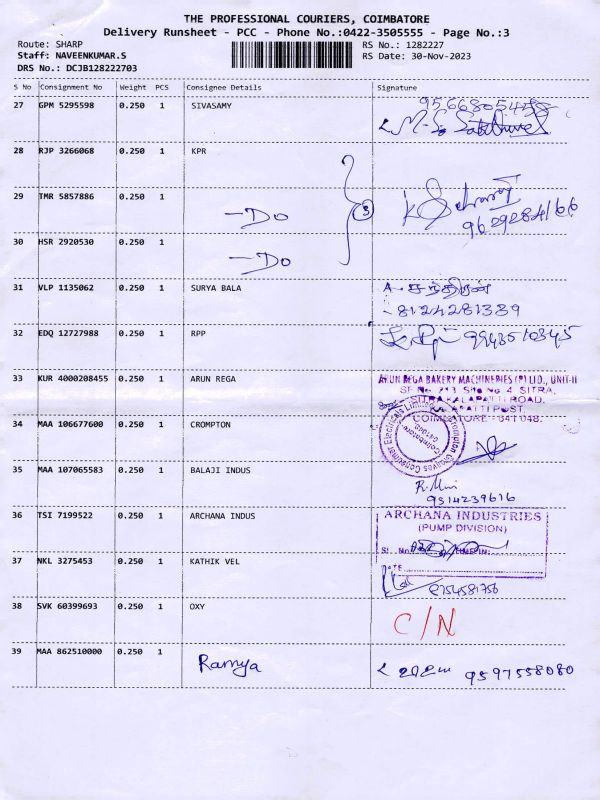 THE PROFESSIONAL COURIERS, COIMBATORE
Delivery Runsheet - PCC - Phone No.:0422-3505555 - Page No.:3
Route: SHARP
Staff: NAVEENKUMAR.S
DRS No.: DCJB128222703
RS No.: 1282227
RS Date: 30-Nov-2023
S No Consignment No Weight PCS Consignee Details Signature
27 GPM 5295598 0.250 1 SIVASAMY 9566805458
28 RJP 3266068 0.250 1 KPR
29 TMR 5857886 0.250 1 —Do 3
9629284166
30 HSR 2920530 0.250 1 —Do
31 VLP 1135062 0.250 1 SURYA BALA
8124281389
32 EDQ 12727988 0.250 1 RPP 9943510345
33 KUR 4000208455 0.250 1 ARUN REGA ARUN REGA BAKERY MACHINERIES (P) LTD., UNIT-II
SF No 213, Site No 4, SITRA,
SITRA KALAPATTI ROAD,
KALAPATTI POST,
COIMBATORE - 641 048.
34 MAA 106677600 0.250 1 CROMPTON Crompton Greaves Consumer Electricals Limited
Coimbatore
641048
35 MAA 107065583 0.250 1 BALAJI INDUS
9514239616
36 TSI 7199522 0.250 1 ARCHANA INDUS ARCHANA INDUSTRIES
(PUMP DIVISION)
SL. No. TIME IN:
DATE
37 NKL 3275453 0.250 1 KATHIK VEL
8754581756
38 SVK 60399693 0.250 1 OXY C/N
39 MAA 862510000 0.250 1 Ramya 9597558080